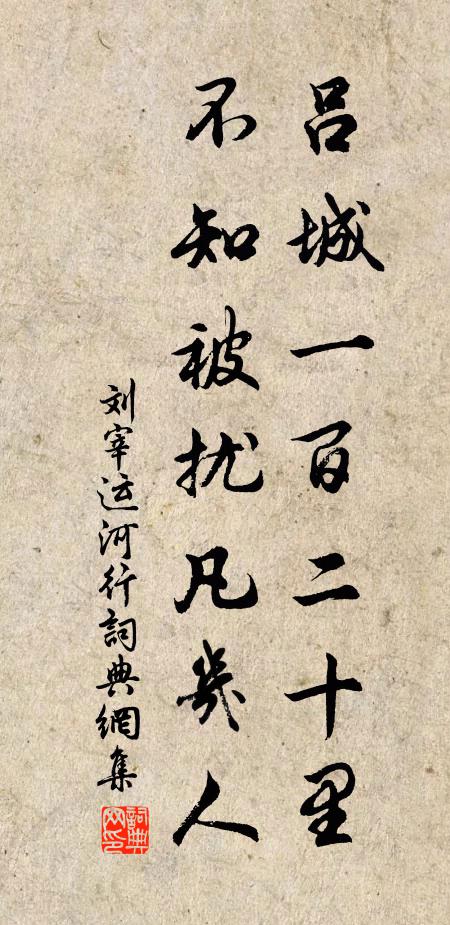 吕城一百二十里
不知被扰凡幾人
刘宰运河行詞典網集
詞典
网印